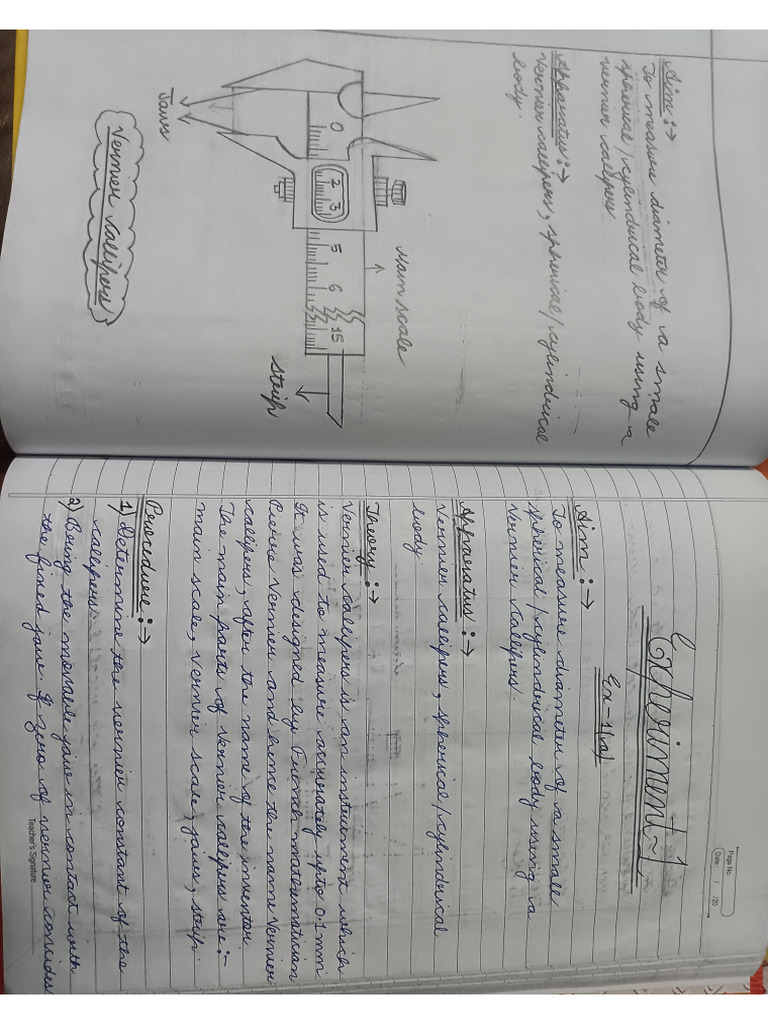 Aim :→
To measure diameter of a small
spherical/cylinderical body using a
vernier callipers
Apparatus :→
Vernier callipers, spherical/cylinderical
body.
Main scale
0
2 3
5 6 15
Jaws
Strip
Vernier Callipers
Page No.
Date / /20
Experiment~1
Ex-1(a)
Aim :→
To measure diameter of a small
spherical/cylinderical body using a
Vernier Callipers.
Apparatus :→
Vernier callipers, spherical/cylinderical
body.
Theory :→
Vernier callipers is an instrument which
is used to measure accurately upto 0.1 mm
It was designed by French mathematician
Pierre Vernier and hence the name Vernier
callipers, after the name of the inventor
The main parts of Vernier callipers are :-
main scale, Vernier scale, jaws, strip.
Proceedure :→
1) Determine the vernier constant of the
callipers
2) Bring the movable jaw in contact with
the fixed jaw. If zero of vernier coincides
Teacher's Signature